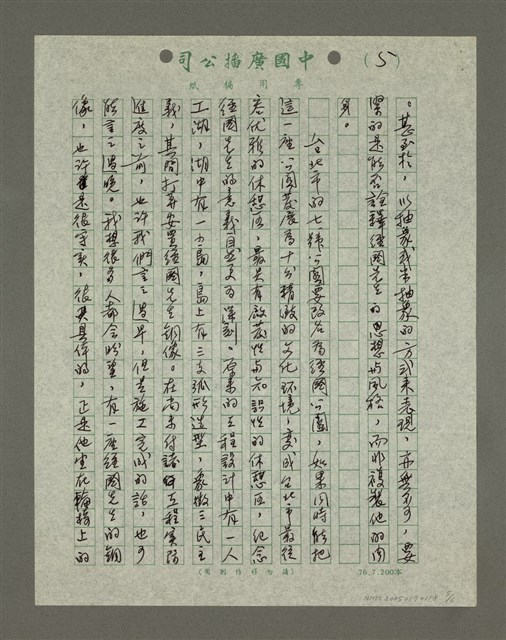 (5)
中國廣播公司
專用稿紙
。甚至於，以抽象或半抽象的方式來表現，亦無不可，要
緊的是能否詮釋經國先生的思想與風格，而非複製他的肉
身。
台北市的七號公園要改名為經國公園，如果同時能把
這一座公園發展為十分精緻的文化環境，變成台北市最從
容优雅的休憩區，最具有啟發性与知識性的休憩區，紀念
經國先生的意義自然更為深刻。原案的工程設計中有一人
工湖，湖中有一小島，島上有三支弧形造型，象徵三民主
義，其間打算安置經國先生銅像。在尚未付諸工程實際
進度之前，也許我們言之過早，但若施工完成的話，也可
能言之過晚。我想很多人都会盼望，有一座經國先生的銅
像，也許是很寫實，很具体的，正是他坐在輪椅上的
(請勿移作別用)
76.7.200本
5/6